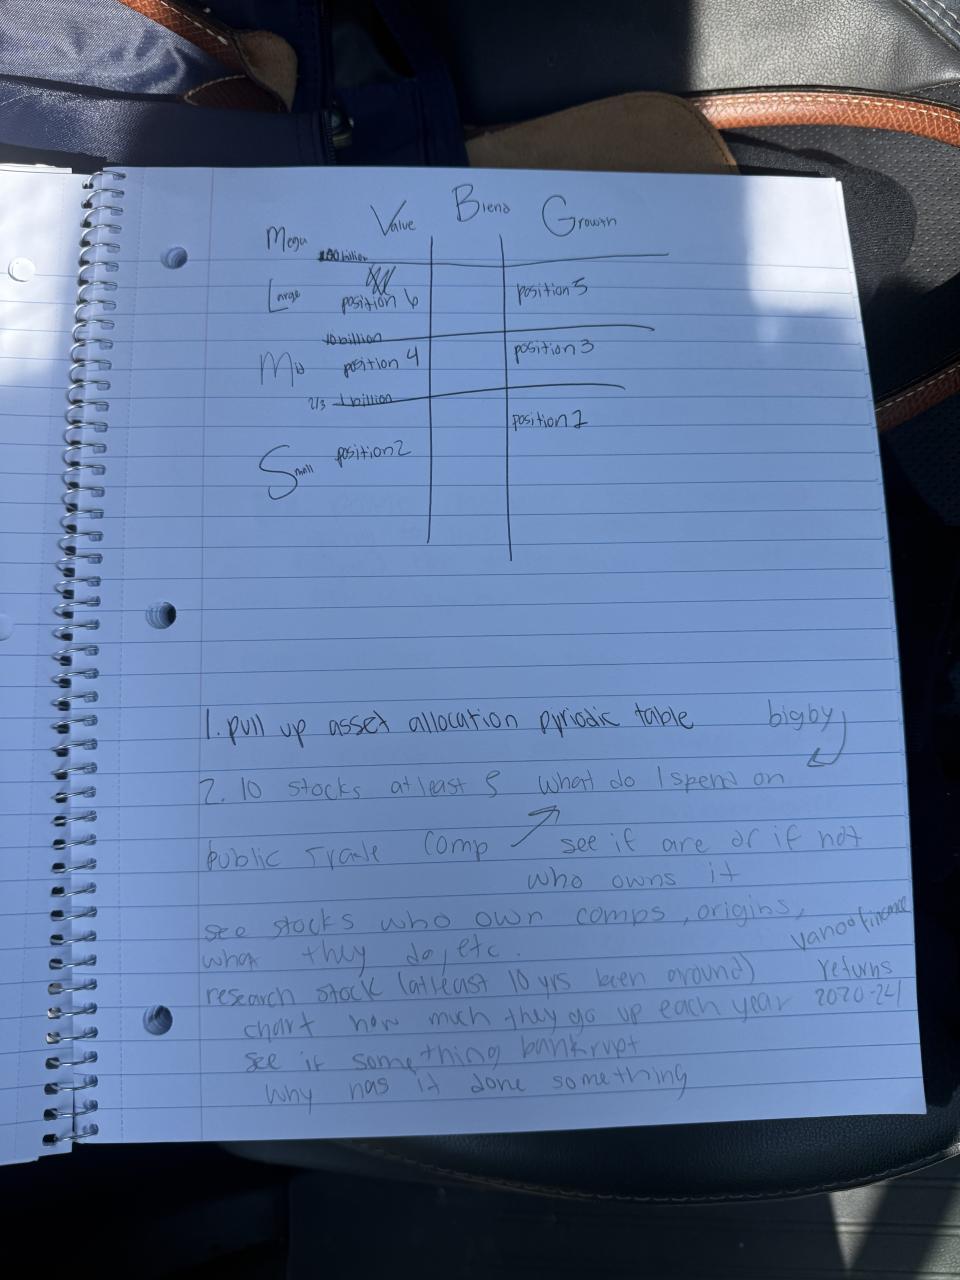 Value Blend Growth
Mega
100 billion
Large position 6 position 5
10 billion
Mid position 4 position 3
2/3 1 billion
position 1
Small position 2
1. pull up asset allocation pyriodic table bigby
2. 10 stocks at least 5 what do I spend on
public Trade Comp see if are or if not
who owns it
see stocks who own comps, origins,
what they do, etc. yahoo finance
research stock (atleast 10 yrs been around) returns
chart how much they go up each year 2020-24
see if something bankrupt
why has it done something